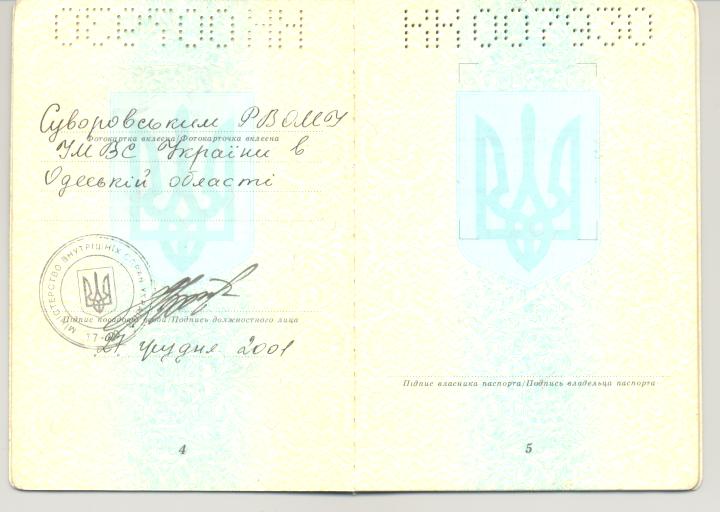 КК007930
Суворовським РВ ОМУ
Фотокартка вклеєна/Фотокарточка вклеена
УМВС України в
Одеській області
МІНІСТЕРСТВО ВНУТРІШНІХ СПРАВ
Підпис посадової особи/Подпись должностного лица
27 грудня 2001
4
Підпис власника паспорта/Подпись владельца паспорта
5